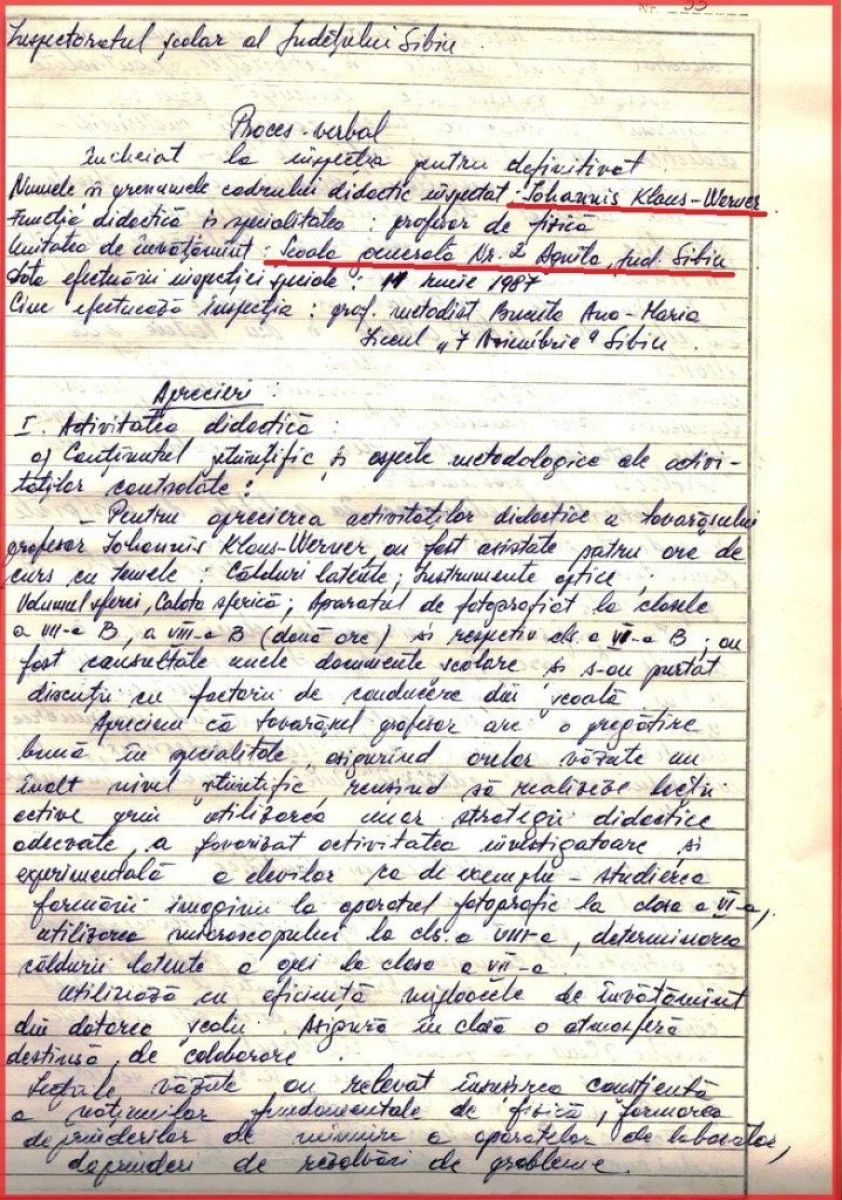 Nr. 33
Inspectoratul școlar al Județului Sibiu.
Proces-verbal
încheiat la inspecția pentru definitivat
Numele și prenumele cadrului didactic inspectat: Iohannis Klaus-Werner
Funcția didactică și specialitatea: profesor de fizică
Unitatea de învățămînt: Școala generală Nr. 2 Agnita, jud. Sibiu
Data efectuării inspecției speciale: 11 iunie 1987
Cine efectuează inspecția: prof. metodist Ana-Maria
Liceul „7 Noiembrie" Sibiu.
Aprecieri:
I. Activitatea didactică:
a) Conținutul științific și aspecte metodologice ale activi-
tăților controlate:
- Pentru aprecierea activităților didactice a tovarășului
profesor Iohannis Klaus-Werner au fost asistate patru ore de
curs cu temele: Călduri latente; Instrumente optice;
Volumul sferei, Calota sferică; Aparatul de fotografiat la clasele
a VII-a B, a VIII-a B (două ore) și respectiv cls. a VI-a B; au
fost consultate unele documente școlare și s-au purtat
discuții cu factorii de conducere din școală
Apreciem că tovarășul profesor are o pregătire
bună în specialitate, asigurînd orelor văzute un
înalt nivel științific, reușind să realizeze lecții
active prin utilizarea unor strategii didactice
adecvate, a favorizat activitatea investigatoare și
experimentală a elevilor ca de exemplu - studierea
formării imaginii la aparatul fotografic la clasa a VI-a,
utilizarea microscopului la cls. a VIII-a, determinarea
căldurii latente a gheții la clasa a VII-a
Utilizează cu eficiență mijloacele de învățămînt
din dotarea școlii. Asigură în clasă o atmosferă
destinsă, de colaborare.
Lecțiile văzute au relevat însușirea conștientă
a noțiunilor fundamentale de fizică, formarea
deprinderilor de mînuire a aparatelor de laborator,
deprinderi de rezolvări de probleme.